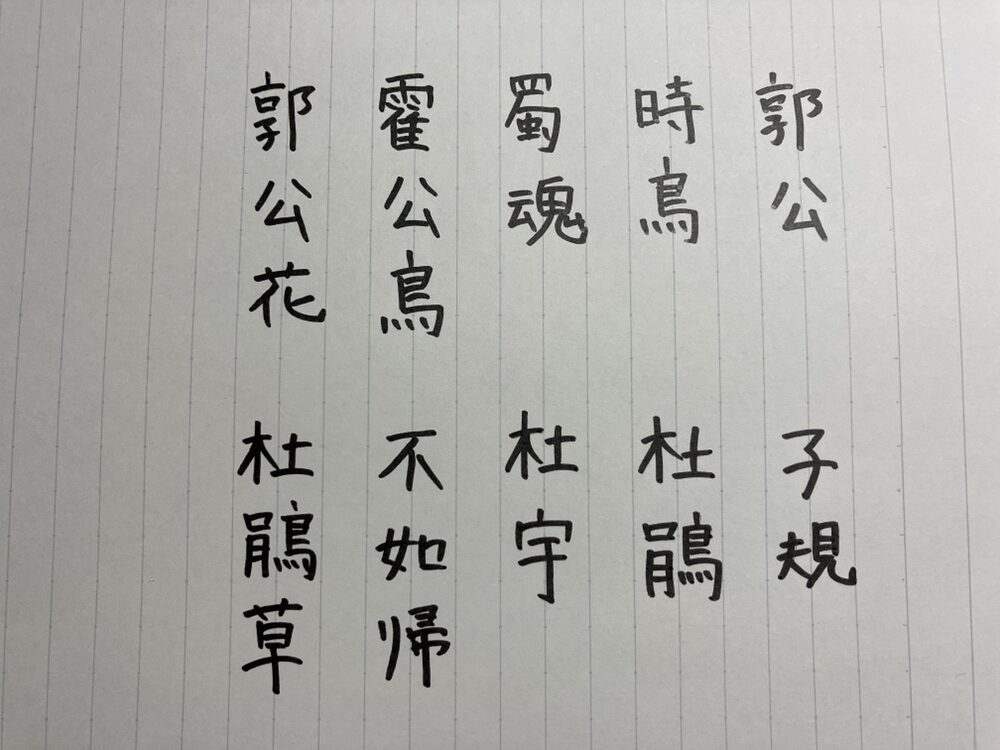 郭公
子規
時鳥
杜鵑
蜀魂
杜宇
霍公鳥
不如帰
郭公花
杜鵑草